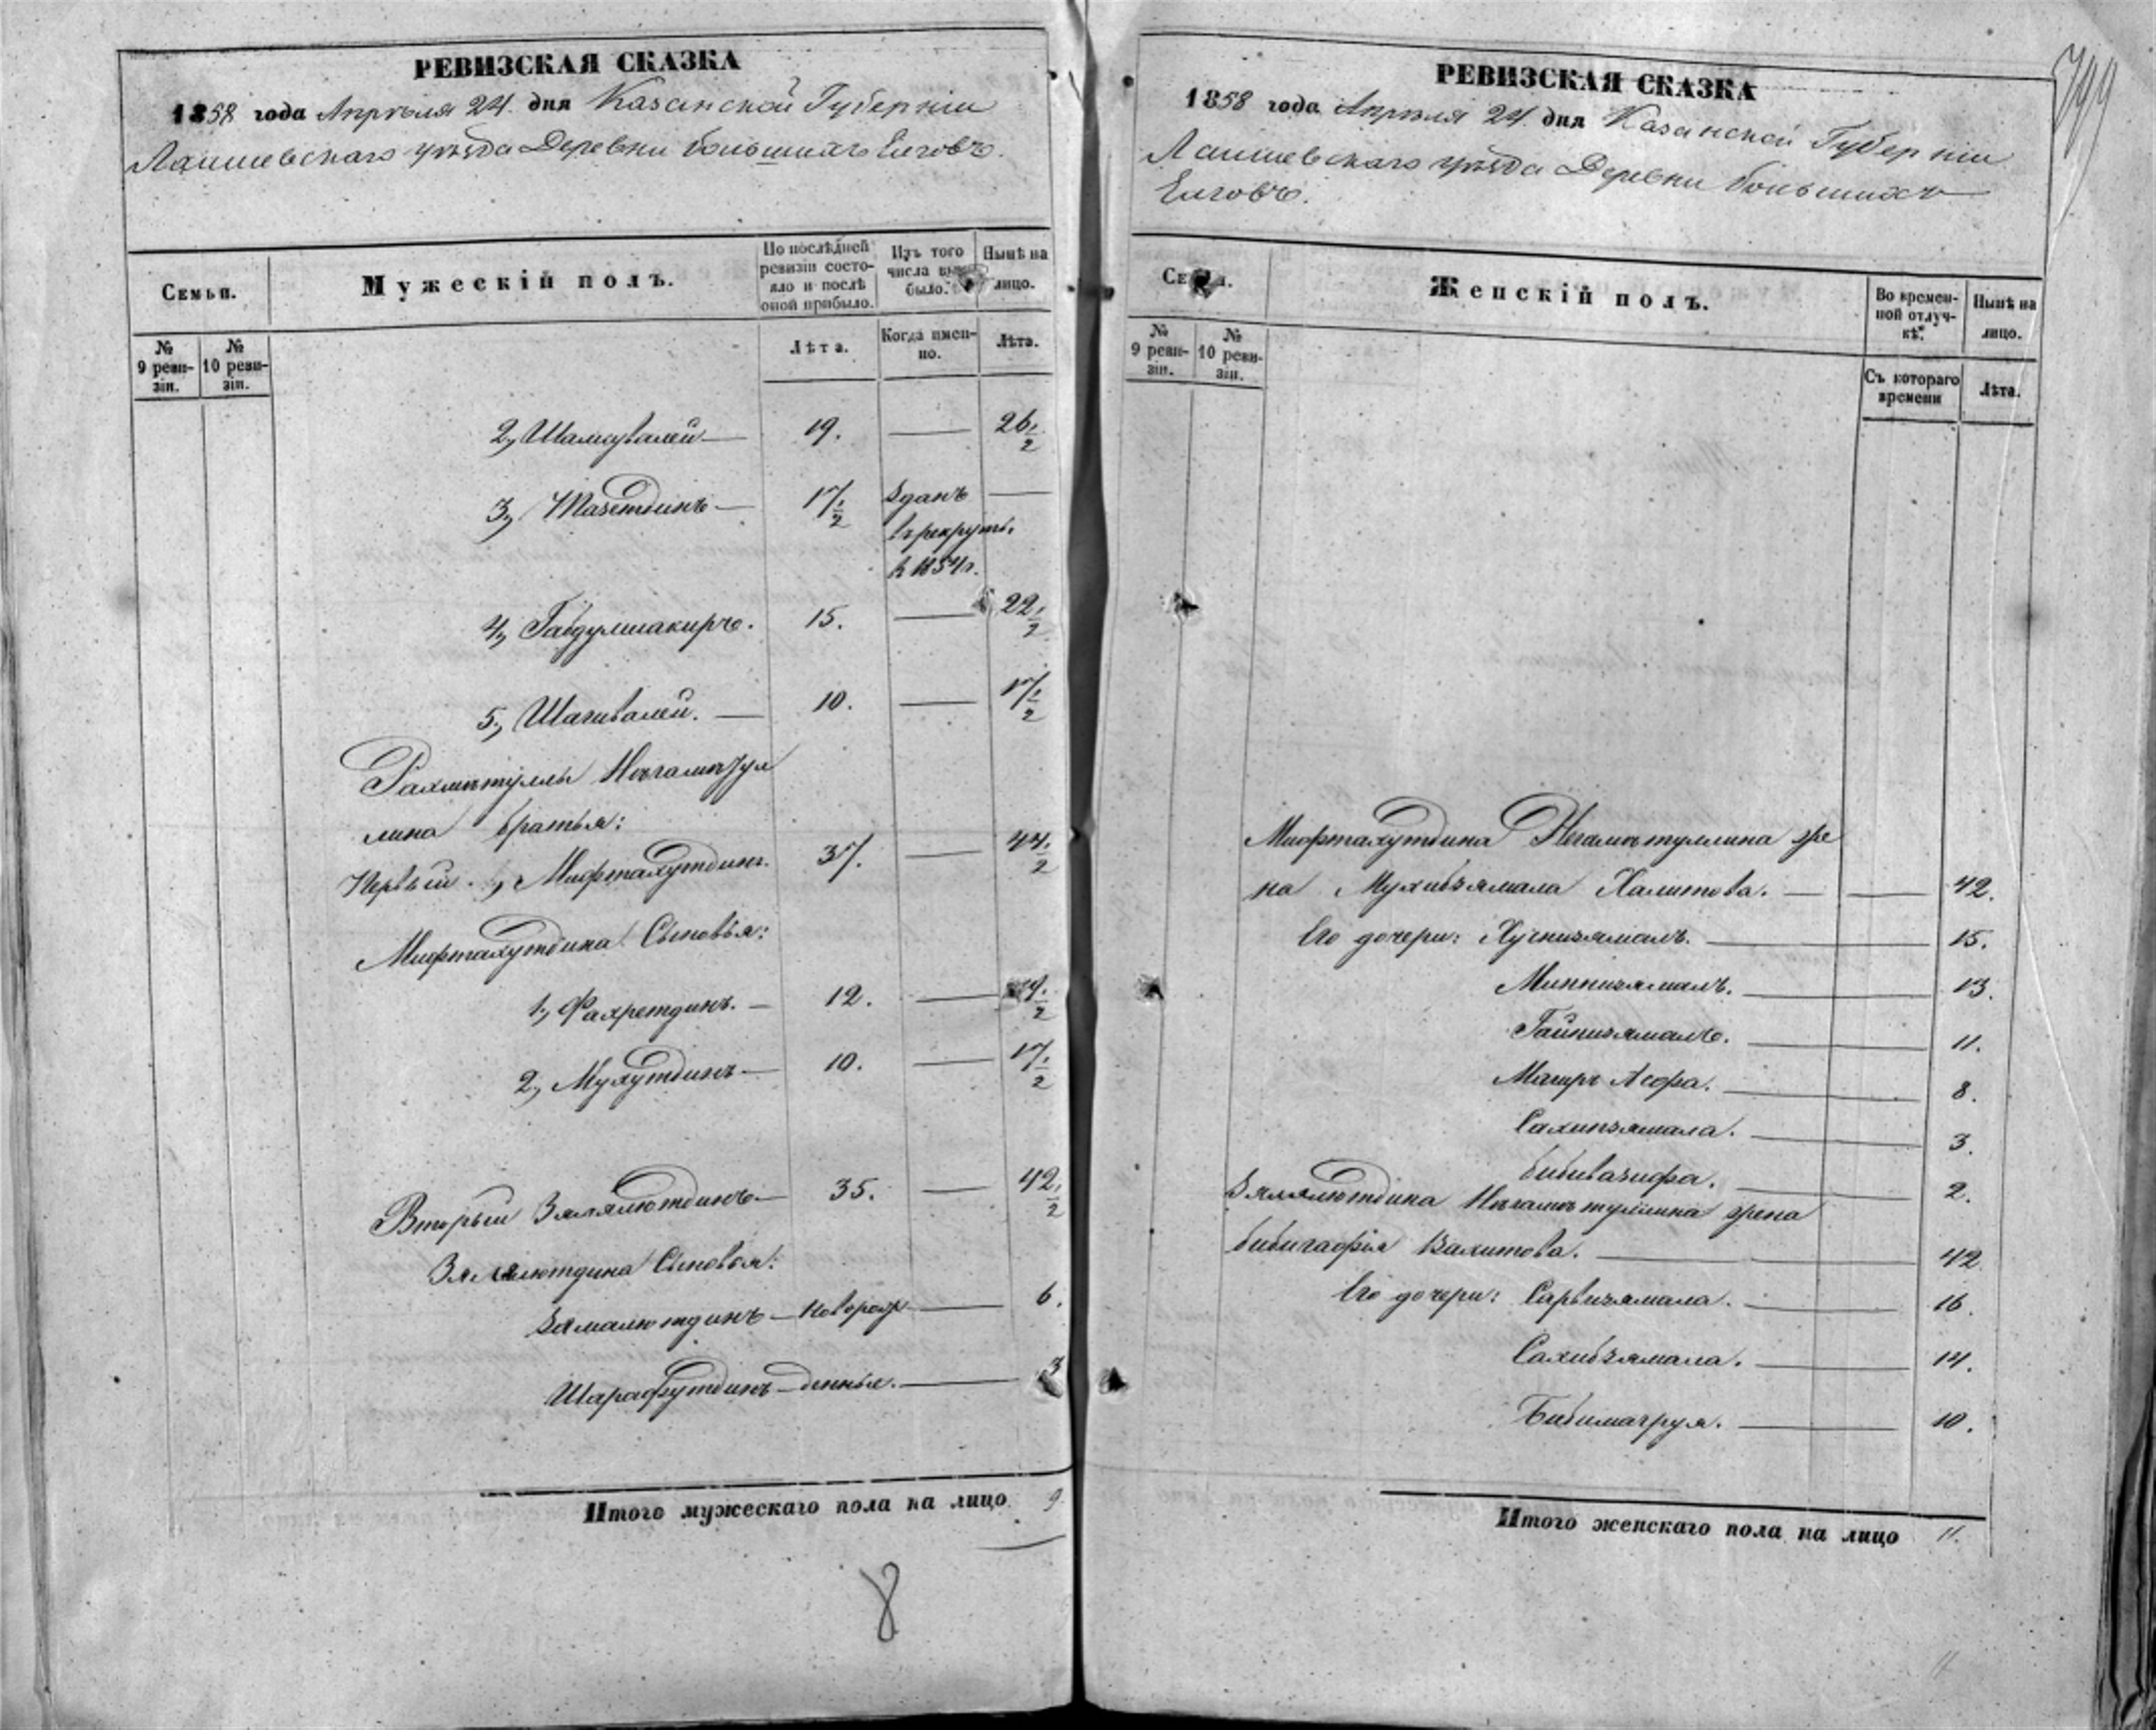 РЕВИЗСКАЯ СКАЗКА
1858 года Апрѣля 24. дня Казанской Губерніи
Лаишевскаго уѣзда Деревни большихъ Елговъ.
Семьи.
Мужескій полъ.
По послѣдней ревизіи состояло и послѣ оной прибыло.
Изъ того числа выбыло.
Нынѣ на лицо.
№ 9 ревизіи.
№ 10 ревизіи.
Лѣта.
Когда именно.
Лѣта.
2, Шамсувалей — 19. — 26 1/2
3, Тазетдинъ — 17 1/2 Зданъ —
въ рекруты
в 1854 г.
4, Габдулшакиръ. 15. — 22 1/2
5, Шагивалей. — 10. — 17 1/2
Рахматуллы Нигаматул
лина братья:
Первый, Мифтахутдинъ. 37. — 44 1/2
Мифтахутдина Сыновья:
1, Фахретдинъ. — 12. — 1/2
2, Мухутдинъ — 10. — 17 1/2
Вторый Зялялютдинъ — 35. — 42 1/2
Зялялютдина Сыновья:
Замалютдинъ — новорож — 6.
Шарафутдинъ — денные. — 3
Итого мужескаго пола на лицо 9
8
799
РЕВИЗСКАЯ СКАЗКА
1858 года Апрѣля 24. дня Казанской Губерніи
Лаишевскаго уѣзда Деревни большихъ
Елговъ.
Семьи.
Женскій полъ.
Во временной отлучкѣ.
Нынѣ на лицо.
№ 9 ревизіи.
№ 10 ревизіи.
Съ котораго времени
Лѣта.
Мифтахутдина Нигаматуллина же
на Мухибзямала Халитова. — — 42.
Его дочери: Хуснизямалъ. — 15.
Миннизямалъ. — 13.
Гайнизямалъ. — 11.
Магръ Асфа. — 8.
Сахипзямала. — 3.
бибивазифа. — 2.
Зялялютдина Нигаматуллина жена
бибигафія Вахитова. — 42
Его дочери: Сарвизямала. — 16.
Сахибзямала. — 14.
Бибимагруя. — 10.
Итого женскаго пола на лицо 11.